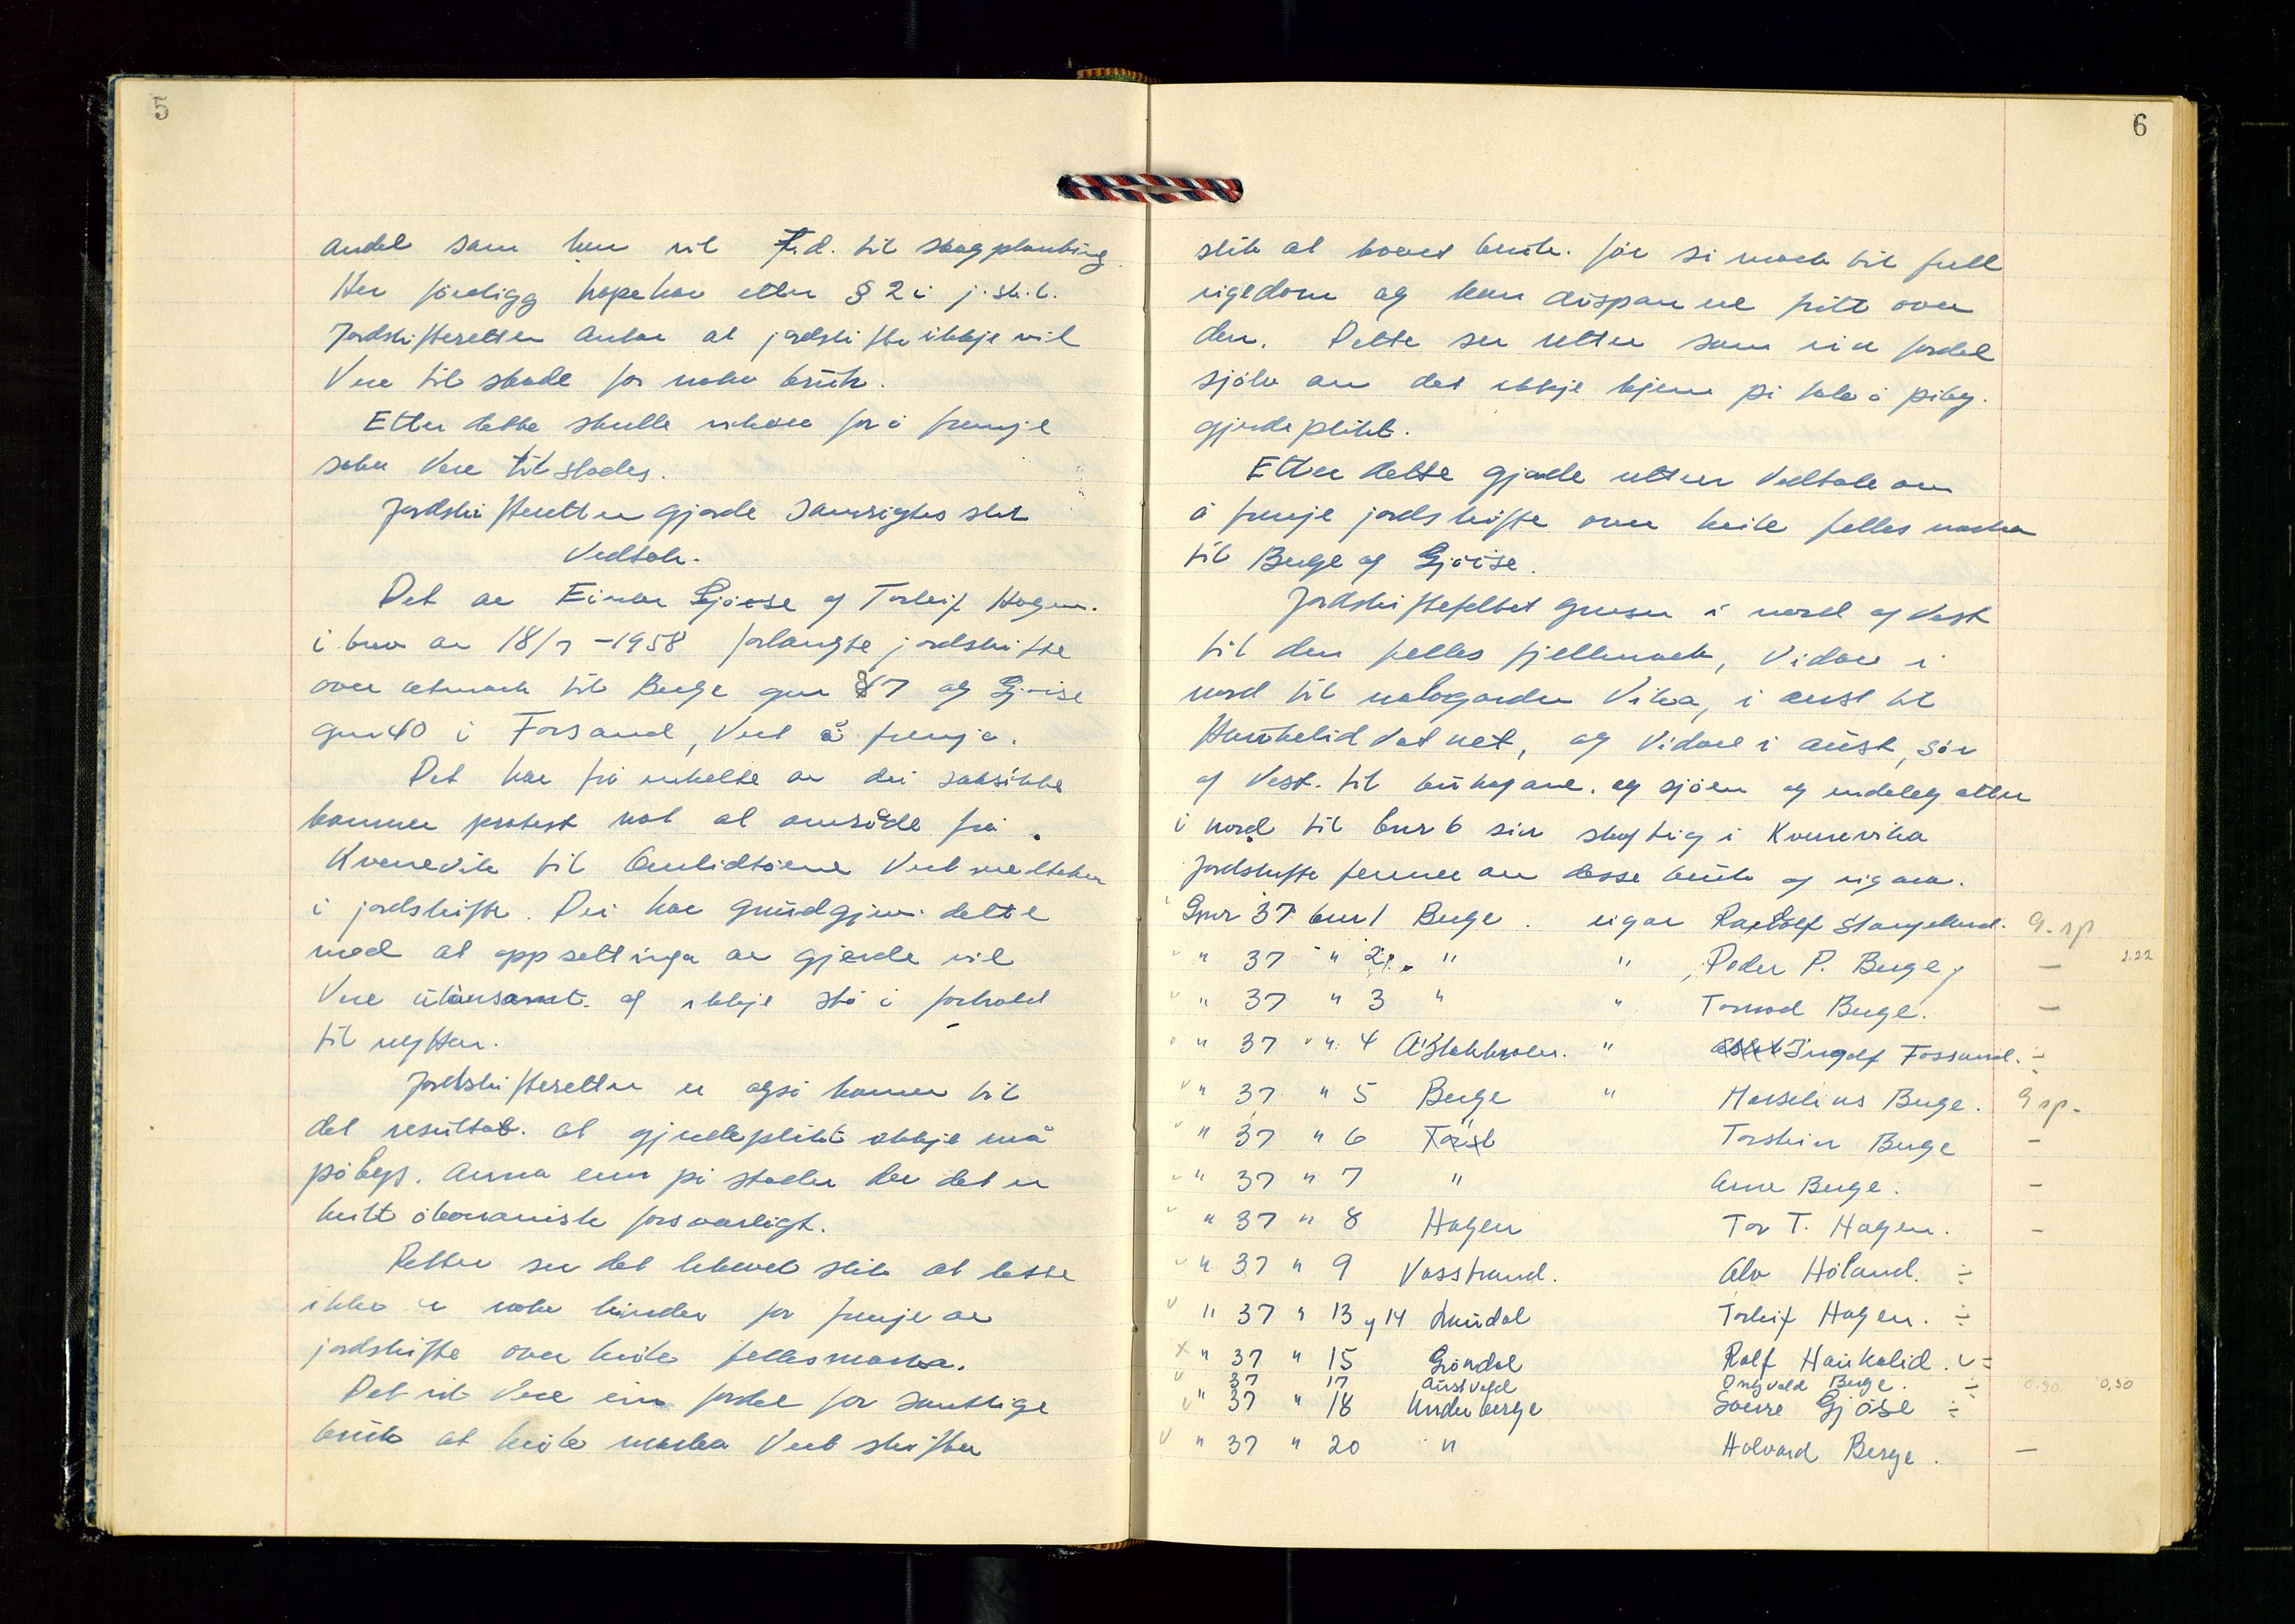 5
andel som han vil f.d. til skogplanting.
Her föreligg höpehav etter § 2 i j.sk.l.
Jordskifteretten antar at jordskifte ikkje vil
vere til skade for noko bruk.
Etter dette skulle vilkåra for å fremje
saka vere til stades.
Jordskifteretten gjorde samrøystes slikt
Vedtak.
Det av Einar Gjöese og Torleif Hagen.
i brev av 18/7 - 1958 forlangte jordskifte
over utmark til Berge gnr 37 og Gjöise
gnr 40 i Forsand, vert å fremja.
Det har frå enkelte av dei saksökte
kommen protest mot at område frå
Kvernevik til vert medteken
i jordskifte. Dei har grundgjeve dette
med at oppsettinga av gjerde vil
vere ulönsamt. og ikkje stå i forhold
til nytten.
Jordskifteretten er også komen til
det resultat. at gjerdeplikt ikkje må
påleggs. anna enn på stader der det er
heilt ökonomisk forsvarligt.
Retten ser det likevel slik at dette
ikkje er noko hinder for fremje av
jordskifte over heile fellesmarka.
Det vil vere ein fordel for samtlige
bruk at heile marka vert skiften
6
slik at kvart bruk. får si mark til full
eigedom og kan disponere fritt over
den. Dette ser retten som ein fordel
sjölv om det ikkje kjem på tale å påleg.
gjerdeplikt.
Etter dette gjorde retten vedtak om
å fremje jordskifte over heile fellesmarka
til Berge og Gjöise.
Jordskiftefeltet grenser i nord og vest
til den felles fjellmark, vidare i
nord til nabogarden Vika, i aust til
Haukelidvatnet, og vidare i aust, sör
og vest. til bühagane. og sjöen og endeleg atter
i nord til bnr 6 sin skogteig i Kvernevika
Jordskifte femner om desse bruk og eigara.
Gnr 37 bnr 1 Berge. eigar Radolf Stangeland. G.sp
" 37 " 2 " " Peder P. Berge — 2.22
" 37 " 3 " " Tormod Berge. —
" 37 " 4 " Ingolf Fossand. ÷
" 37 " 5 Berge " Marselius Berge. G sp.
" 37 " 6 Torskin Berge –
" 37 " 7 " Arne Berge. –
" 37 " 8 Hagen Tor T. Hagen. –
" 37 " 9 Vasstrand. Alv Höland. ÷
" 37 " 13 og 14 Lundal Torleif Hagen. ÷
x " 37 " 15 Gröndal Rolf Haukalid. ÷
37 17 Austvold Ingvald Berge. ÷ 0.30 0.30
" 37 " 18 Underberge Sverre Gjöse ÷
" 37 " 20 " Halvard Berge. —